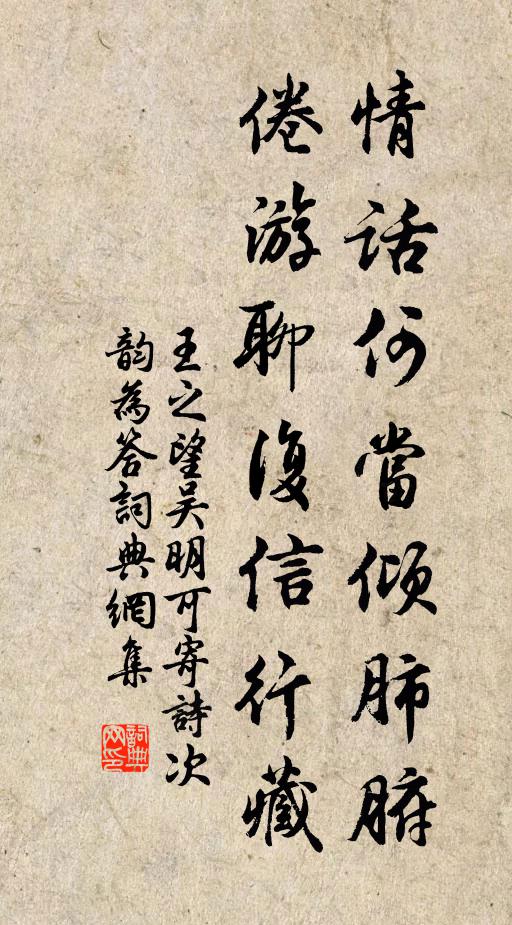 情話何當傾肺腑
倦游聊復信行藏
王之望吴明可寄詩次
韵為答詞典網集
詞典
网印